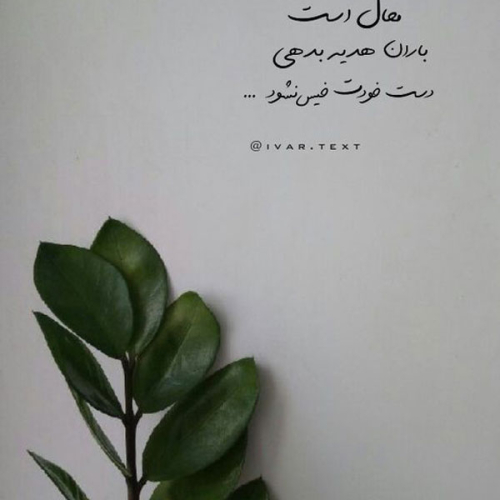 محال است
باران هدیه بدهی
دست خودت خیس نشود ...
@IVAR.TEXT